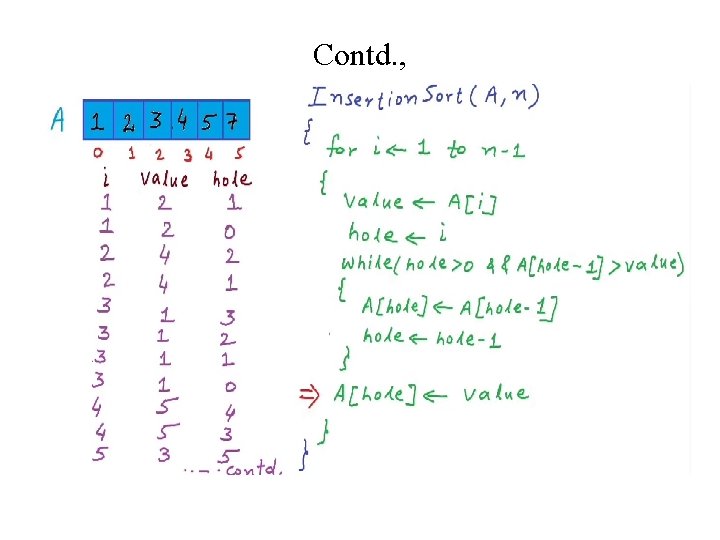 Contd. ,
A 1 2 3 4 5 7
0 1 2 3 4 5
i value hole
1 2 1
1 2 0
2 4 2
2 4 1
3 1 3
3 1 2
3 1 1
3 1 0
4 5 4
4 5 3
5 3 5
..-.contd.
InsertionSort(A,n)
{
for i← 1 to n-1
{
Value ← A[i]
hole ← i
while(hole>0 && A[hole-1]>value)
{
A[hole]← A[hole-1]
hole ← hole-1
}
⇒ A[hole]← value
}
}